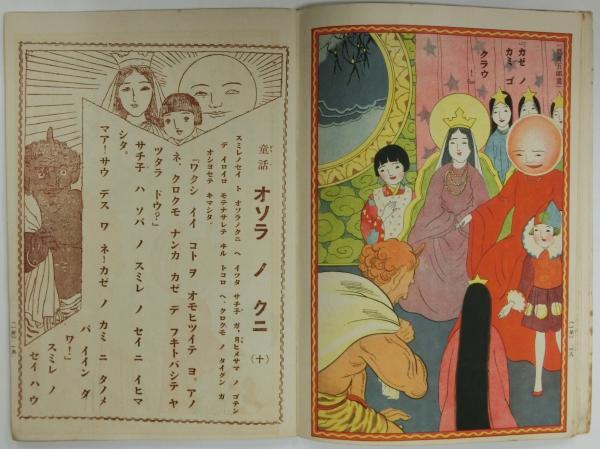 『カゼ ノ
カミ ゴ
クラウ
！』
童話 オソラ ノ クニ (十)
スミレノセイト オソラノクニ ヘ イツタ サチ子 ガ、月ヒメサマ ノ ゴテン
デ イロイロ モテナサレテ ヰル トコロ ヘ、クロクモ ノ タイグン ガ
オシヨセテ キマシタ。
「ワタシ イイ コトヲ オモヒツイテ ヨ。アノ
ネ、クロクモ ナンカ カゼ デ フキトバシテ ヤ
ツタラ ドウ？」
サチ子 ハ ソバ ノ スミレ ノ セイニ イヒマ
シタ。
マア！サウ デス ワ ネ！カゼ ノ カミ ニ タノメ
バ イイン ダ
ワ！」
スミレ ノ
セイ ハ ウ